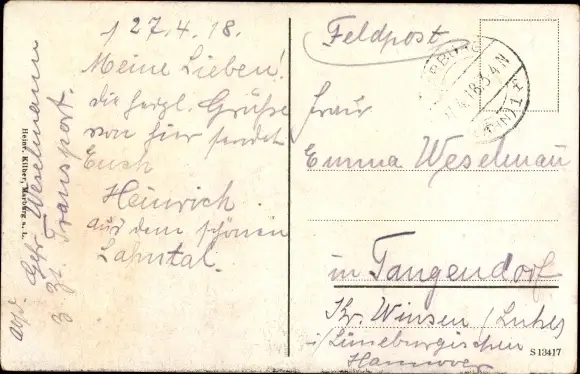 27.4.18.
Meine Lieben!
die herzl. Grüße
von hier sendet
Euch
Heinrich
aus dem schönen
Lahntal.
Gefr. Weselmann
z. Zt. Transport.
Heinr. Kilberg, Marburg a. L.
Feldpost
Frau
Emma Weselmann
in Tangendorf
Kr. Winsen (Luhe)
i/ Lüneburgischen
Hannover
S 13417